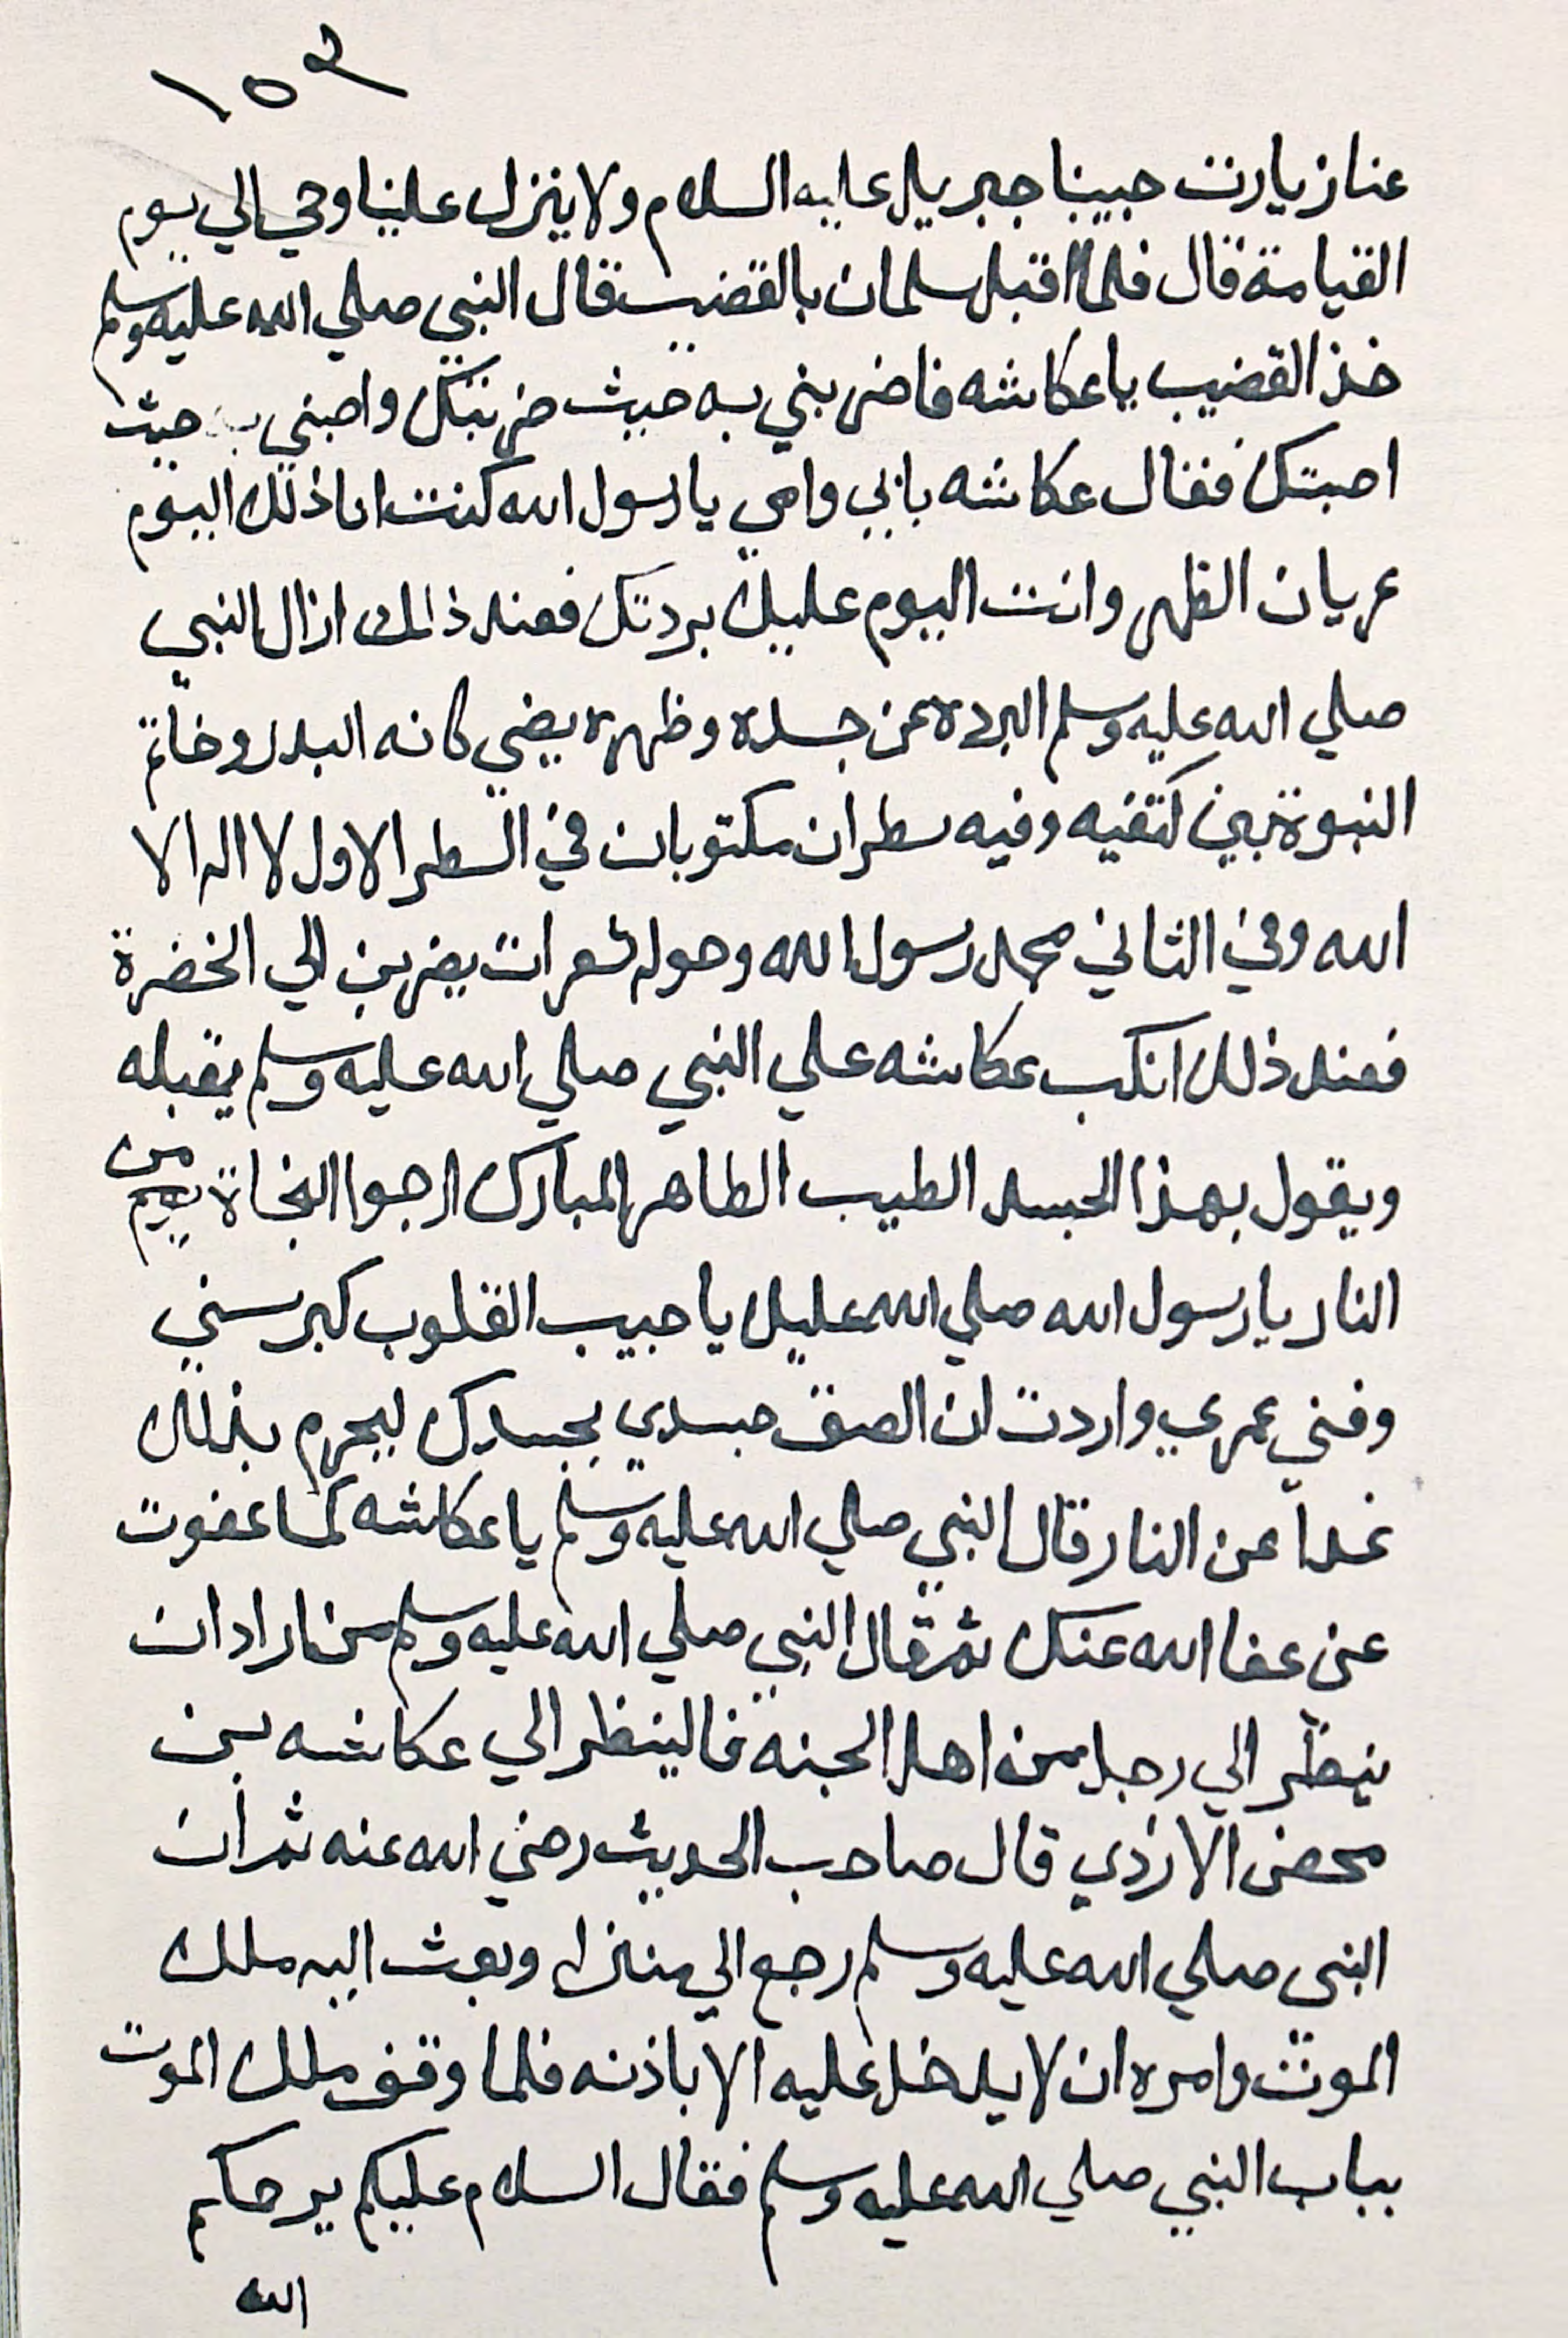 ١٥٣
عنا زيارت حبيبنا جبريل عليه السلام ولا ينزل علينا وحي الي يوم
القيامة قال فلما اقبل سلمان بالقضيب قال النبي صلي الله عليه وسلم
خذ القضيب يا عكاشه فاضربني به حيث ضربتك واصبني به حيث
اصبتك فقال عكاشه بابي وامي يا رسول الله كنت انا ذلك اليوم
عريان الظهر وانت اليوم عليك بردتك فعند ذالك ازال النبي
صلي الله عليه وسلم البرده عن جسده وظهره يضي كانه البدر وخاتم
النبوة بين كتفيه وفيه سطران مكتوبان في السطر الاول لا اله الا
الله وفي الثاني محمد رسول الله وحوله شعرات يضربن الي الخضرة
فعند ذلك انكب عكاشه علي النبي صلي الله عليه وسلم يقبله
ويقول بهذا الجسد الطيب الطاهر المبارك ارجوا النجاة يوم من
النار يا رسول الله صلي الله عليك يا حبيب القلوب كبر سني
وفني عمري واردت ان الصق جسدي بجسدك ليحرم بذلك
غدا عن النار قال النبي صلي الله عليه وسلم يا عكاشه كما عفوت
عني عفا الله عنك ثم قال النبي صلي الله عليه وسلم من اراد ان
ينظر الي رجل من اهل الجنه فالينظر الي عكاشه بن
محضن الازدي قال صاحب الحديث رضي الله عنه ثم ان
النبي صلي الله عليه وسلم رجع الي منزله وبعث اليه ملك
الموت وامره ان لا يدخل عليه الا باذنه فلما وقف ملك الموت
بباب النبي صلي الله عليه وسلم فقال السلام عليكم يرحكم
الله